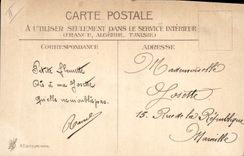 CARTE POSTALE
A UTILISER SEULEMENT DANS LE SERVICE INTÉRIEUR
(FRANCE, ALGÉRIE, TUNISIE)
CORRESPONDANCE
ADRESSE
Petite
dis à ma Josette
qu'elle ne m'oublie pas.
Mademoiselle
Josette
15, Rue de la République
Marseille